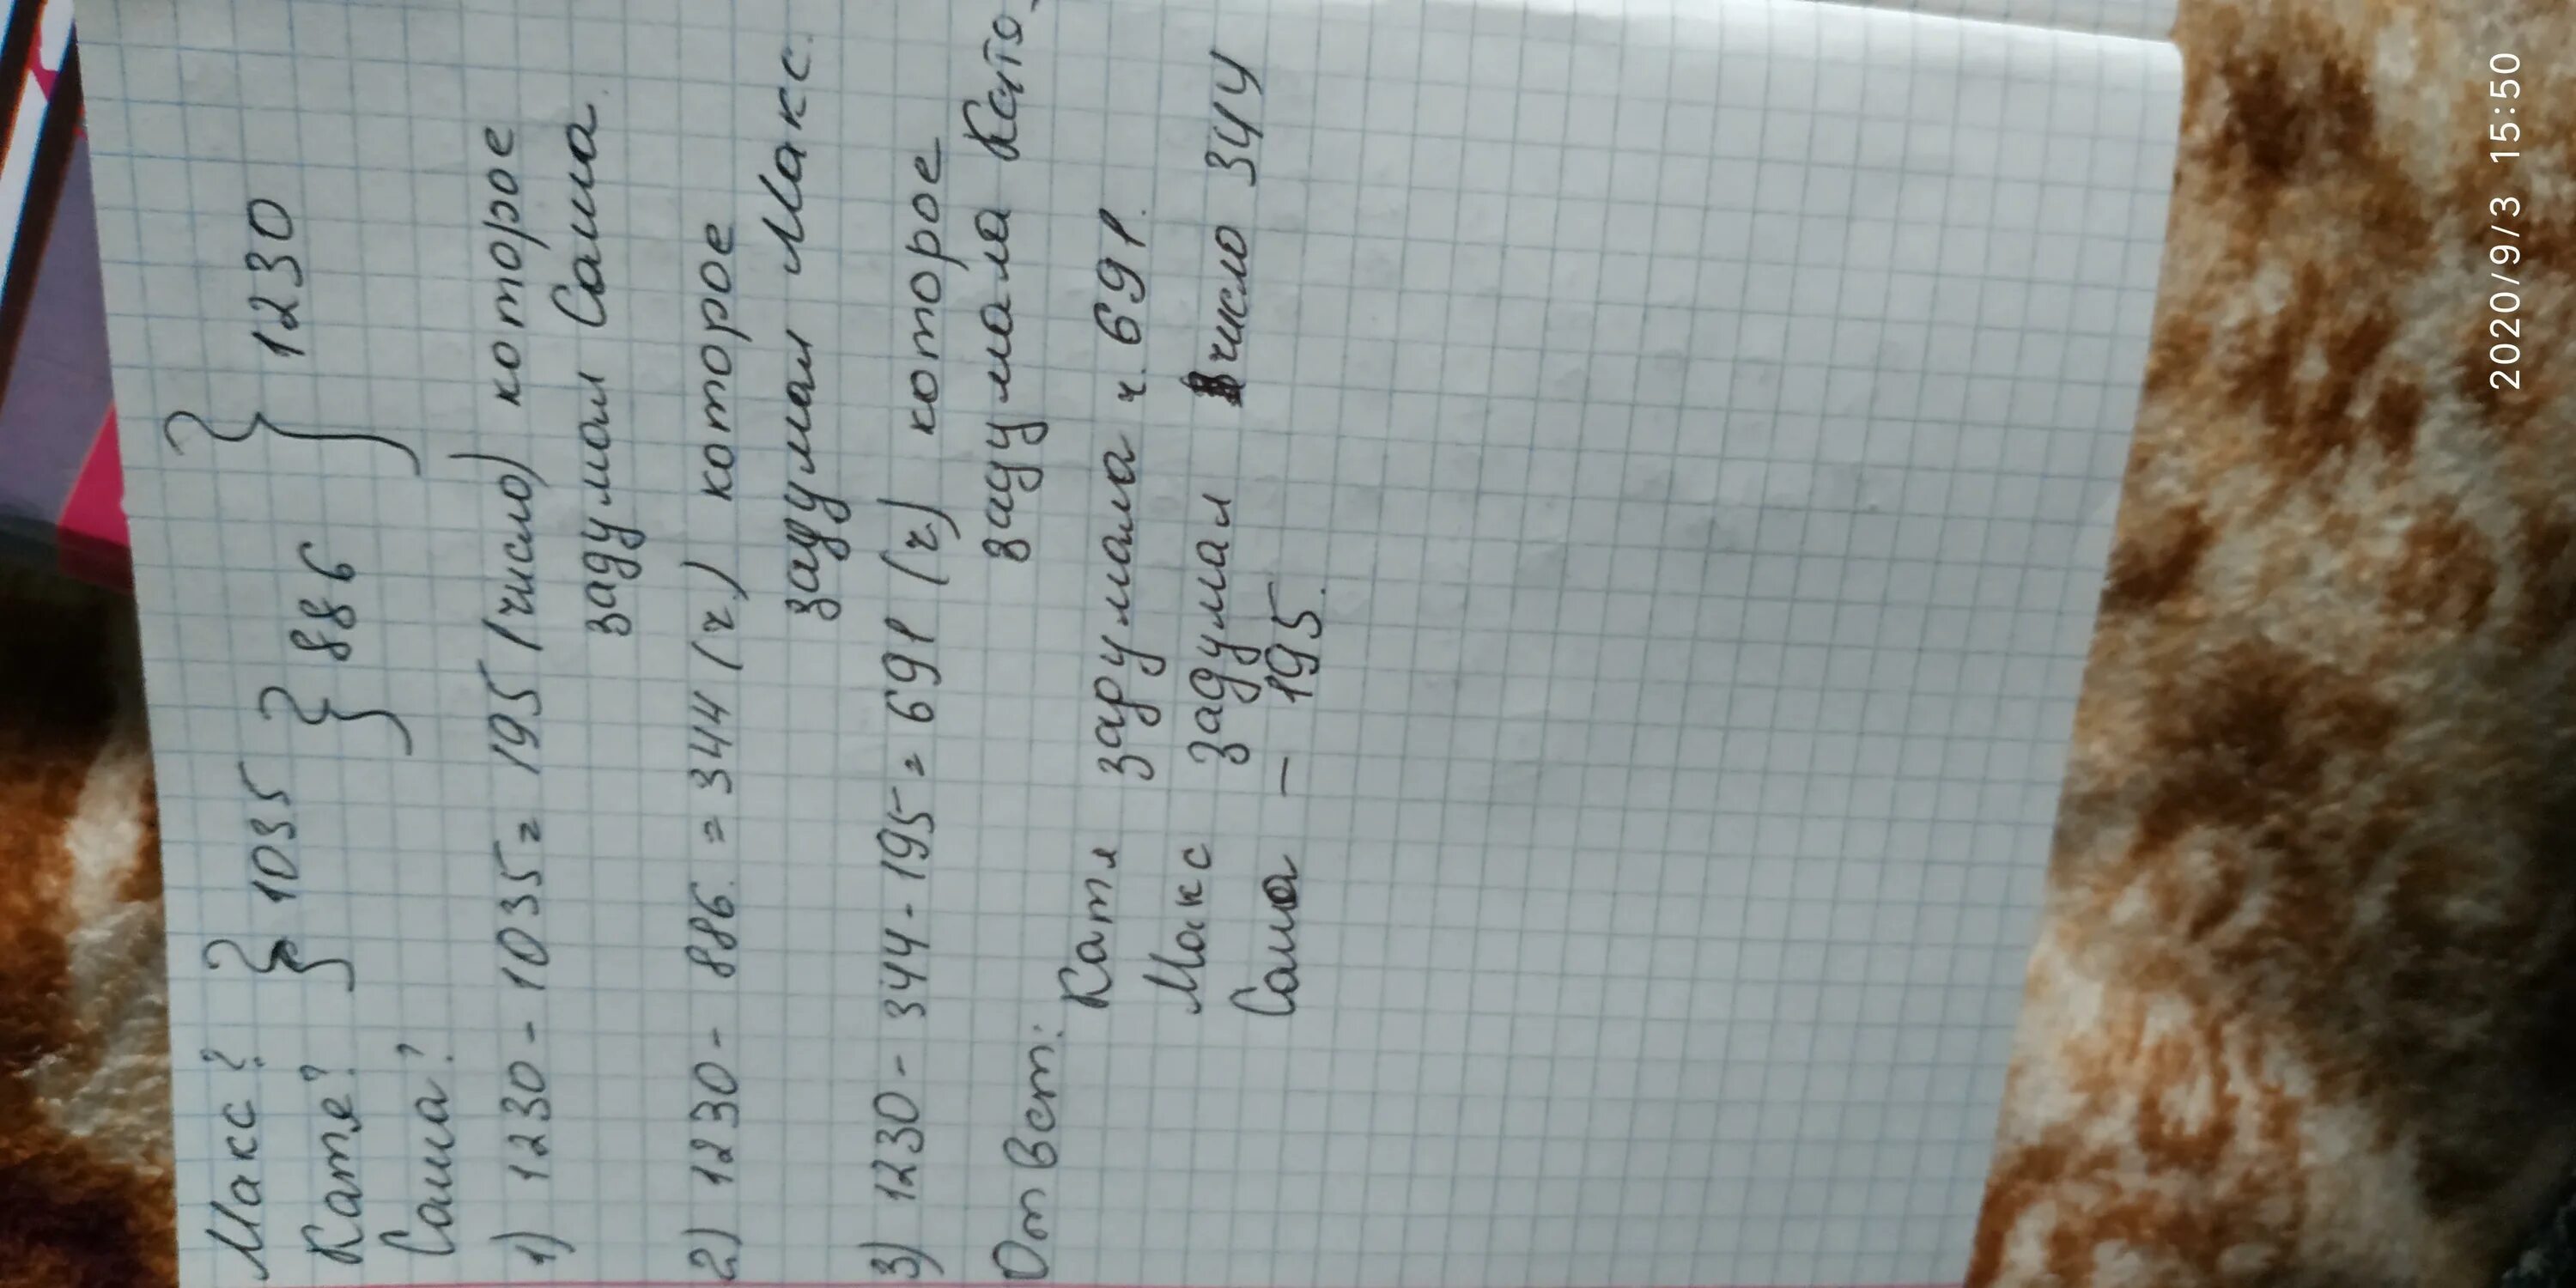 Макс? } 1035 } 1230
Катя? } 886
Саша?
1) 1230 - 1035 = 195 (число) которое
задумал Саша.
2) 1230 - 886. = 344 (ч.) которое
задумал Макс.
3) 1230 - 344 - 195 = 691 (ч.) которое
задумала Катя.
Ответ: Катя задумала ч. 691.
Макс задумал число 344
Саша — 195.
2020/9/3 15:50